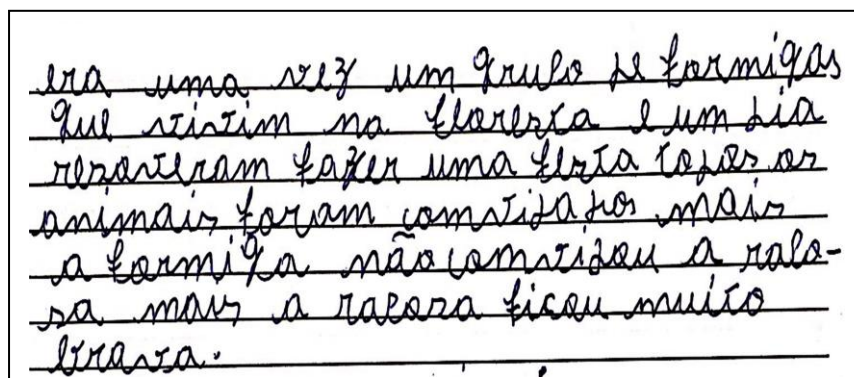 era uma vez um grupo de formigas
que vivim na floresta e um dia
resoveram fazer uma festa todos os
animais foram comvidados mais
a formiga não comvidou a rapo-
sa mais a raposa ficou muito
brava.